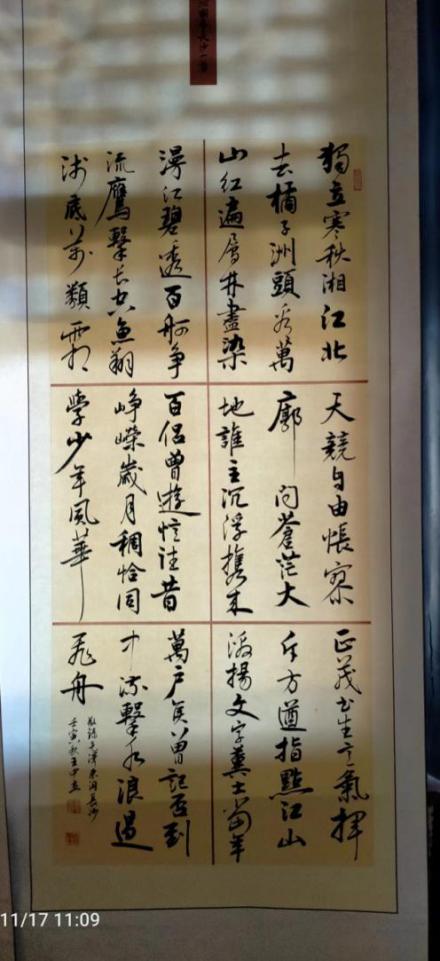 獨立寒秋湘江北
去橘子洲頭看萬
山紅遍層林盡染
漫江碧透百舸爭
流鷹擊長空魚翔
淺底萬類霜
天競自由悵寥
廓問蒼茫大
地誰主沉浮攜來
百侶曾遊憶往昔
崢嶸歲月稠恰同
學少年風華
正茂書生意氣揮
斥方遒指點江山
激揚文字糞土當年
萬戶侯曾記否到
中流擊水浪遏
飛舟
敬錄毛澤東詞長沙
壬寅秋王中立
11/17 11:09